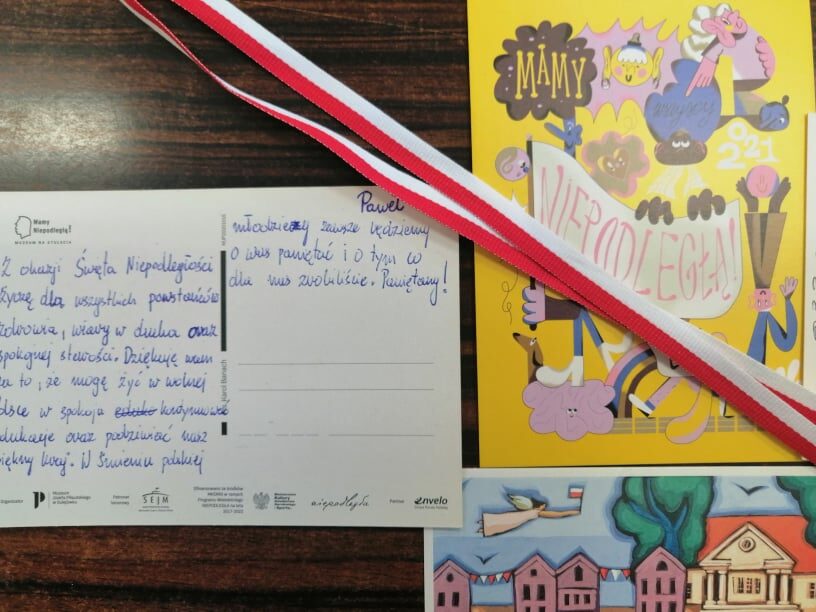 Mamy
Niepodległą!
MUZEUM NA STULECIE
Z okazji Święta Niepodległości
życzę dla wszystkich powstańców
zdrowia, wiary w ducha oraz
spokojnej starości. Dziękuję wam
za to, że mogę żyć w wolnej
olsce w spokoju kontynuować
edukacje oraz podziwiać nasz
piękny kraj. W Imieniu polskiej
Paweł
młodzieży zawsze będziemy
o was pamiętać i o tym co
dla nas zrobiliście. Pamiętamy!
Karol Banach
Organizator
Muzeum
Józefa Piłsudskiego
w Sulejówku
Patronat
honorowy
SEJM
Dofinansowano ze środków
MKDNiS w ramach
Programu Wieloletniego
NIEPODLEGŁA na lata
2017–2022
Ministerstwo
Kultury
Dziedzictwa
Narodowego
i Sportu
niepodległa
Partner
envelo
MAMY
wszyscy
2021
NIEPODLEGŁĄ!